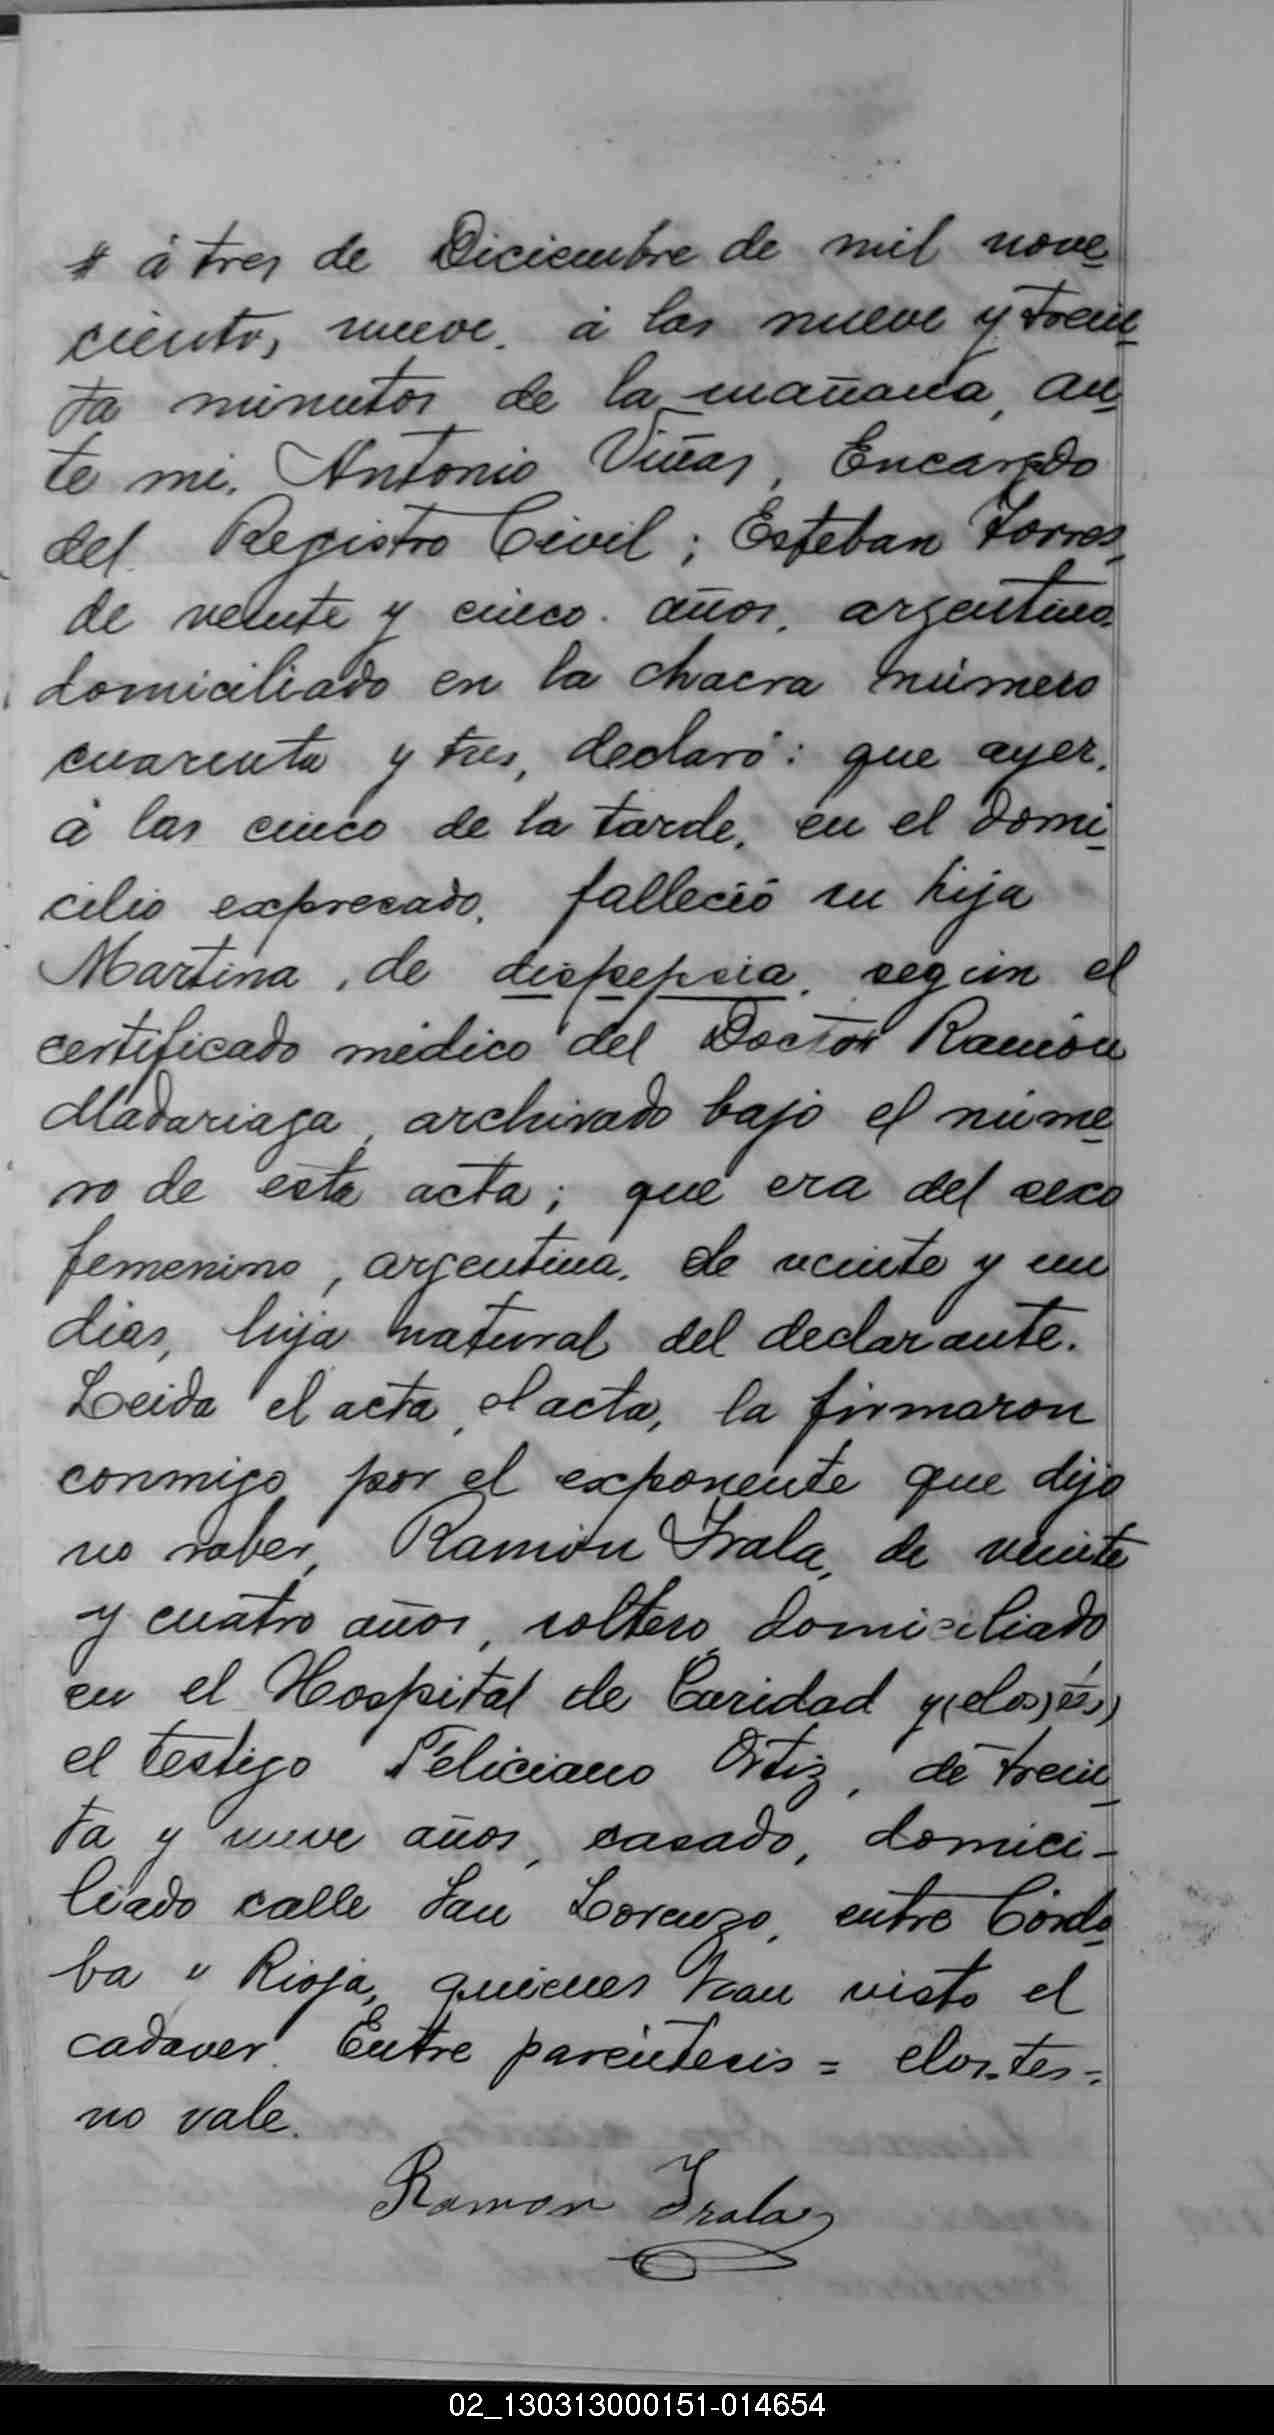 " á tres de Diciembre de mil nove
cientos nueve, á las nueve y trein
ta minutos de la mañana, an
te mi, Antonio Viñas, Encargdo
del Registro Civil; Esteban Torres,
de veinte y cinco años, argentino,
domiciliado en la chacra número
cuarenta y tres, declaró: que ayer,
á las cinco de la tarde, en el domi
cilio expresado, falleció su hija
Martina, de dispepsia, según el
certificado médico del Doctor Ramón
Madariaga, archivado bajo el núme
ro de esta acta; que era del sexo
femenino, argentina, de veinte y un
dias, hija natural del declarante.
Leida el acta, el acta, la firmaron
conmigo por el exponente que dijo
no saber, Ramón Irala, de veinte
y cuatro años, soltero, domiciliado
en el Hospital de Caridad y (elos)
el testigo Feliciano Ortiz, de trein
ta y nueve años, casado, domici-
liado calle San Lorenzo, entre Córdo
ba y Rioja, quienes han visto el
cadaver. Entre paréntesis = elos.tes =
no vale.
Ramón Irala
02_130313000151-014654